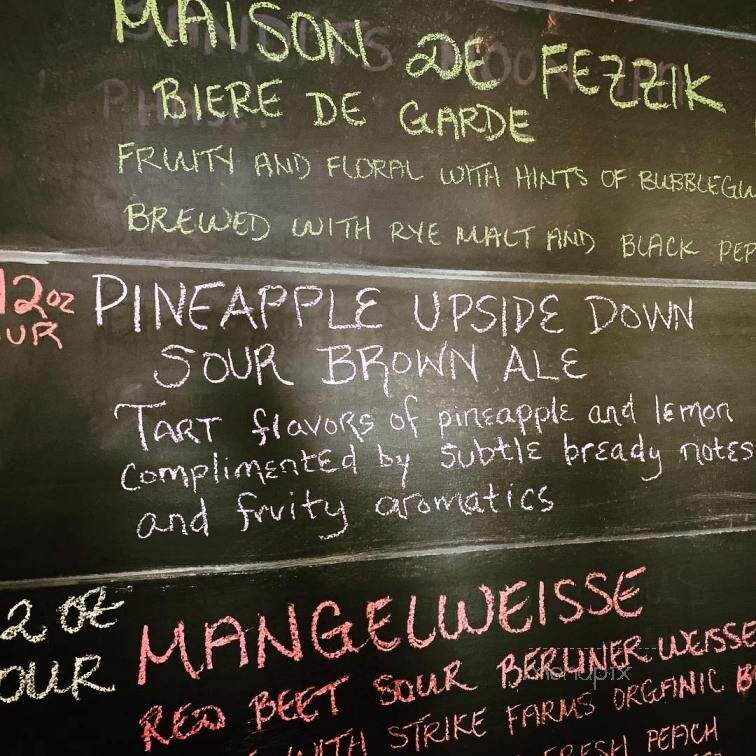 MAISON DE FEZZIK
BIERE DE GARDE
FRUITY AND FLORAL WITH HINTS OF BUBBLEGU
BREWED WITH RYE MALT AND BLACK PEP
12oz
OUR
PINEAPPLE UPSIDE DOWN
SOUR BROWN ALE
TART flavors of pineapple and lemon
complimented by subtle bready notes
and fruity aromatics
2 oz
OUR
MANGELWEISSE
RED BEET SOUR BERLINER WEISSE
WITH STRIKE FARMS ORGANIC B
FRESH PEACH